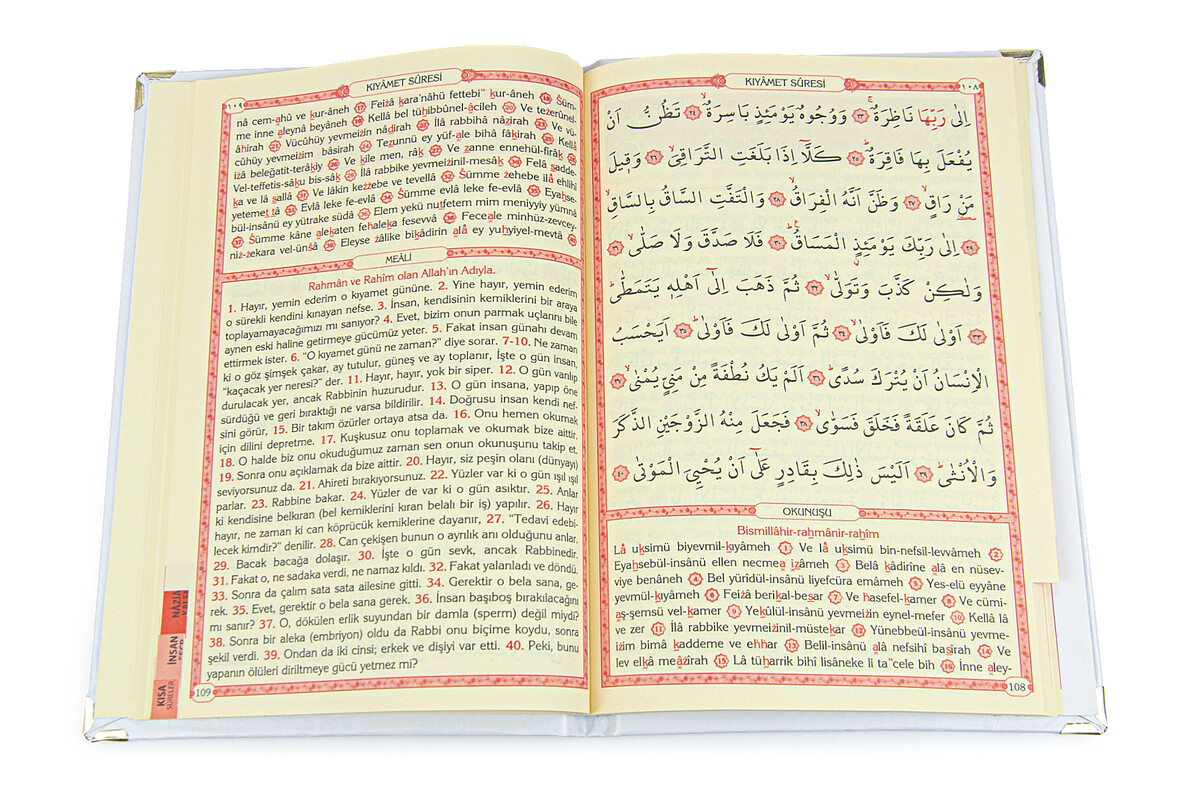 KIYÂMET SÛRESİ
١٠٨
اِلٰى رَبِّهَا نَاظِرَةٌۚ ﴿٢٣﴾ وَوُجُوهٌ يَوْمَئِذٍ بَاسِرَةٌۙ ﴿٢٤﴾ تَظُنُّ اَنْ
يُفْعَلَ بِهَا فَاقِرَةٌۜ ﴿٢٥﴾ كَلَّٓا اِذَا بَلَغَتِ التَّرَاقِيَۙ ﴿٢٦﴾ وَق۪يلَ
مَنْ رَاقٍۙ ﴿٢٧﴾ وَظَنَّ اَنَّهُ الْفِرَاقُۙ ﴿٢٨﴾ وَالْتَفَّتِ السَّاقُ بِالسَّاقِۙ
﴿٢٩﴾ اِلٰى رَبِّكَ يَوْمَئِذٍ الْمَسَاقُۜ ﴿٣٠﴾ فَلَا صَدَّقَ وَلَا صَلّٰىۙ ﴿٣١﴾
وَلٰكِنْ كَذَّبَ وَتَوَلّٰىۙ ﴿٣٢﴾ ثُمَّ ذَهَبَ اِلٰٓى اَهْلِه۪ يَتَمَطّٰىۜ
﴿٣٣﴾ اَوْلٰى لَكَ فَاَوْلٰىۙ ﴿٣٤﴾ ثُمَّ اَوْلٰى لَكَ فَاَوْلٰىۜ ﴿٣٥﴾ اَيَحْسَبُ
الْاِنْسَانُ اَنْ يُتْرَكَ سُدًىۜ ﴿٣٦﴾ اَلَمْ يَكُ نُطْفَةً مِنْ مَنِيٍّ يُمْنٰىۙ ﴿٣٧﴾
ثُمَّ كَانَ عَلَقَةً فَخَلَقَ فَسَوّٰىۙ ﴿٣٨﴾ فَجَعَلَ مِنْهُ الزَّوْجَيْنِ الذَّكَرَ
وَالْاُنْثٰىۜ ﴿٣٩﴾ اَلَيْسَ ذٰلِكَ بِقَادِرٍ عَلٰٓى اَنْ يُحْيِيَ الْمَوْتٰى ﴿٤٠﴾
OKUNUŞU
Bismillâhir-rahmânir-rahîm
Lâ uksimü biyevmil-kıyâmeh 1 Ve lâ uksimü bin-nefsil-levvameh 2
Eyahsebül-insânü ellen necmea ızâmeh 3 Belâ kâdirîne alâ en nüsev-
viye benâneh 4 Bel yürîdül-insânü liyefcüra emâmeh 5 Yes-elü eyyâne
yevmül-kıyâmeh 6 Feizâ berikal-besar 7 Ve hasefel-kamer 8 Ve cümi-
aş-şemsü vel-kamer 9 Yekûlül-insânü yevmeizin eynel-mefer 10 Kellâ lâ
ve zer 11 İlâ rabbike yevmeizinil-müstekar 12 Yünebbeül-insânü yevme-
izim bimâ kaddeme ve ehhar 13 Belil-insânü alâ nefsihî basîrah 14 Ve
lev elkâ meâzîrah 15 Lâ tüharrik bihî lisâneke li ta"cele bih 16 İnne aley-
108
KIYÂMET SÛRESİ
١٠٩
nâ cem-ahû ve kur-âneh 17 Feizâ kara'nâhü fettebi" kur-âneh 18 Süm-
me inne aleynâ beyâneh 19 Kellâ bel tühibbûnel-âcileh 20 Ve tezerûnel-
âhirah 21 Vücûhüy yevmeizin nâdirah 22 İlâ rabbihâ nâzirah 23 Ve vü-
cûhüy yevmeizim bâsirah 24 Tezunnü ey yüf-ale bihâ fâkirah 25 Kellâ
izâ beleğatit-terâkiy 26 Ve kîle men, râk 27 Ve zanne ennehül-firâk 28
Vel-teffetis-sâku bis-sâk 29 İlâ rabbike yevmeizinil-mesâk 30 Felâ sadde-
ka ve lâ sallâ 31 Ve lâkin kezzebe ve tevellâ 32 Sümme zehebe ilâ ehlihî
yetemettâ 33 Evlâ leke fe-evlâ 34 Sümme evlâ leke fe-evlâ 35 Eyahse-
bül-insânü ey yütrake südâ 36 Elem yekü nutfetem mim meniyyiy yümnâ
37 Sümme kâne alekaten fehaleka fesevvâ 38 Feceale minhüz-zevcey-
niz-zekara vel-ünsâ 39 Eleyse zâlike bikâdirin alâ ey yuhyiyel-mevtâ 40
MEÂLİ
Rahmân ve Rahîm olan Allah'ın Adıyla.
1. Hayır, yemin ederim o kıyamet gününe. 2. Yine hayır, yemin ederim
o sürekli kendini kınayan nefse. 3. İnsan, kendisinin kemiklerini bir araya
toplayamayacağımızı mı sanıyor? 4. Evet, bizim onun parmak uçlarını bile
aynen eski haline getirmeye gücümüz yeter. 5. Fakat insan günahı devam
ettirmek ister. 6. "O kıyamet günü ne zaman?" diye sorar. 7-10. Ne zaman
ki o göz şimşek çakar, ay tutulur, güneş ve ay toplanır, İşte o gün insan,
"kaçacak yer neresi?" der. 11. Hayır, hayır, yok bir siper. 12. O gün vanlıp
durulacak yer, ancak Rabbinin huzurudur. 13. O gün insana, yapıp öne
sürdüğü ve geri bıraktığı ne varsa bildirilir. 14. Doğrusu insan kendi nef-
sini görür, 15. Bir takım özürler ortaya atsa da. 16. Onu hemen okumak
için dilini depretme. 17. Kuşkusuz onu toplamak ve okumak bize aittir.
18. O halde biz onu okuduğumuz zaman sen onun okunuşunu takip et.
19. Sonra onu açıklamak da bize aittir. 20. Hayır, siz peşin olanı (dünyayı)
seviyorsunuz da. 21. Ahireti bırakıyorsunuz. 22. Yüzler var ki o gün ışıl ışıl
parlar. 23. Rabbine bakar. 24. Yüzler de var ki o gün asıktır. 25. Anlar
ki kendisine belkıran (bel kemiklerini kıran belalı bir iş) yapılır. 26. Hayır
hayır, ne zaman ki can köprücük kemiklerine dayanır, 27. "Tedavi edebi-
lecek kimdir?" denilir. 28. Can çekişen bunun o ayrılık anı olduğunu anlar.
29. Bacak bacağa dolaşır. 30. İşte o gün sevk, ancak Rabbinedir.
31. Fakat o, ne sadaka verdi, ne namaz kıldı. 32. Fakat yalanladı ve döndü.
33. Sonra da çalım sata sata ailesine gitti. 34. Gerektir o bela sana, ge-
rek. 35. Evet, gerektir o bela sana gerek. 36. İnsan başıboş bırakılacağını
mı sanır? 37. O, dökülen erlik suyundan bir damla (sperm) değil miydi?
38. Sonra bir aleka (embriyon) oldu da Rabbi onu biçime koydu, sonra
şekil verdi. 39. Ondan da iki cinsi; erkek ve dişiyi var etti. 40. Peki, bunu
yapanın ölüleri diriltmeye gücü yetmez mi?
109
NÂZİA
İNSAN
KISA
SÛRELER